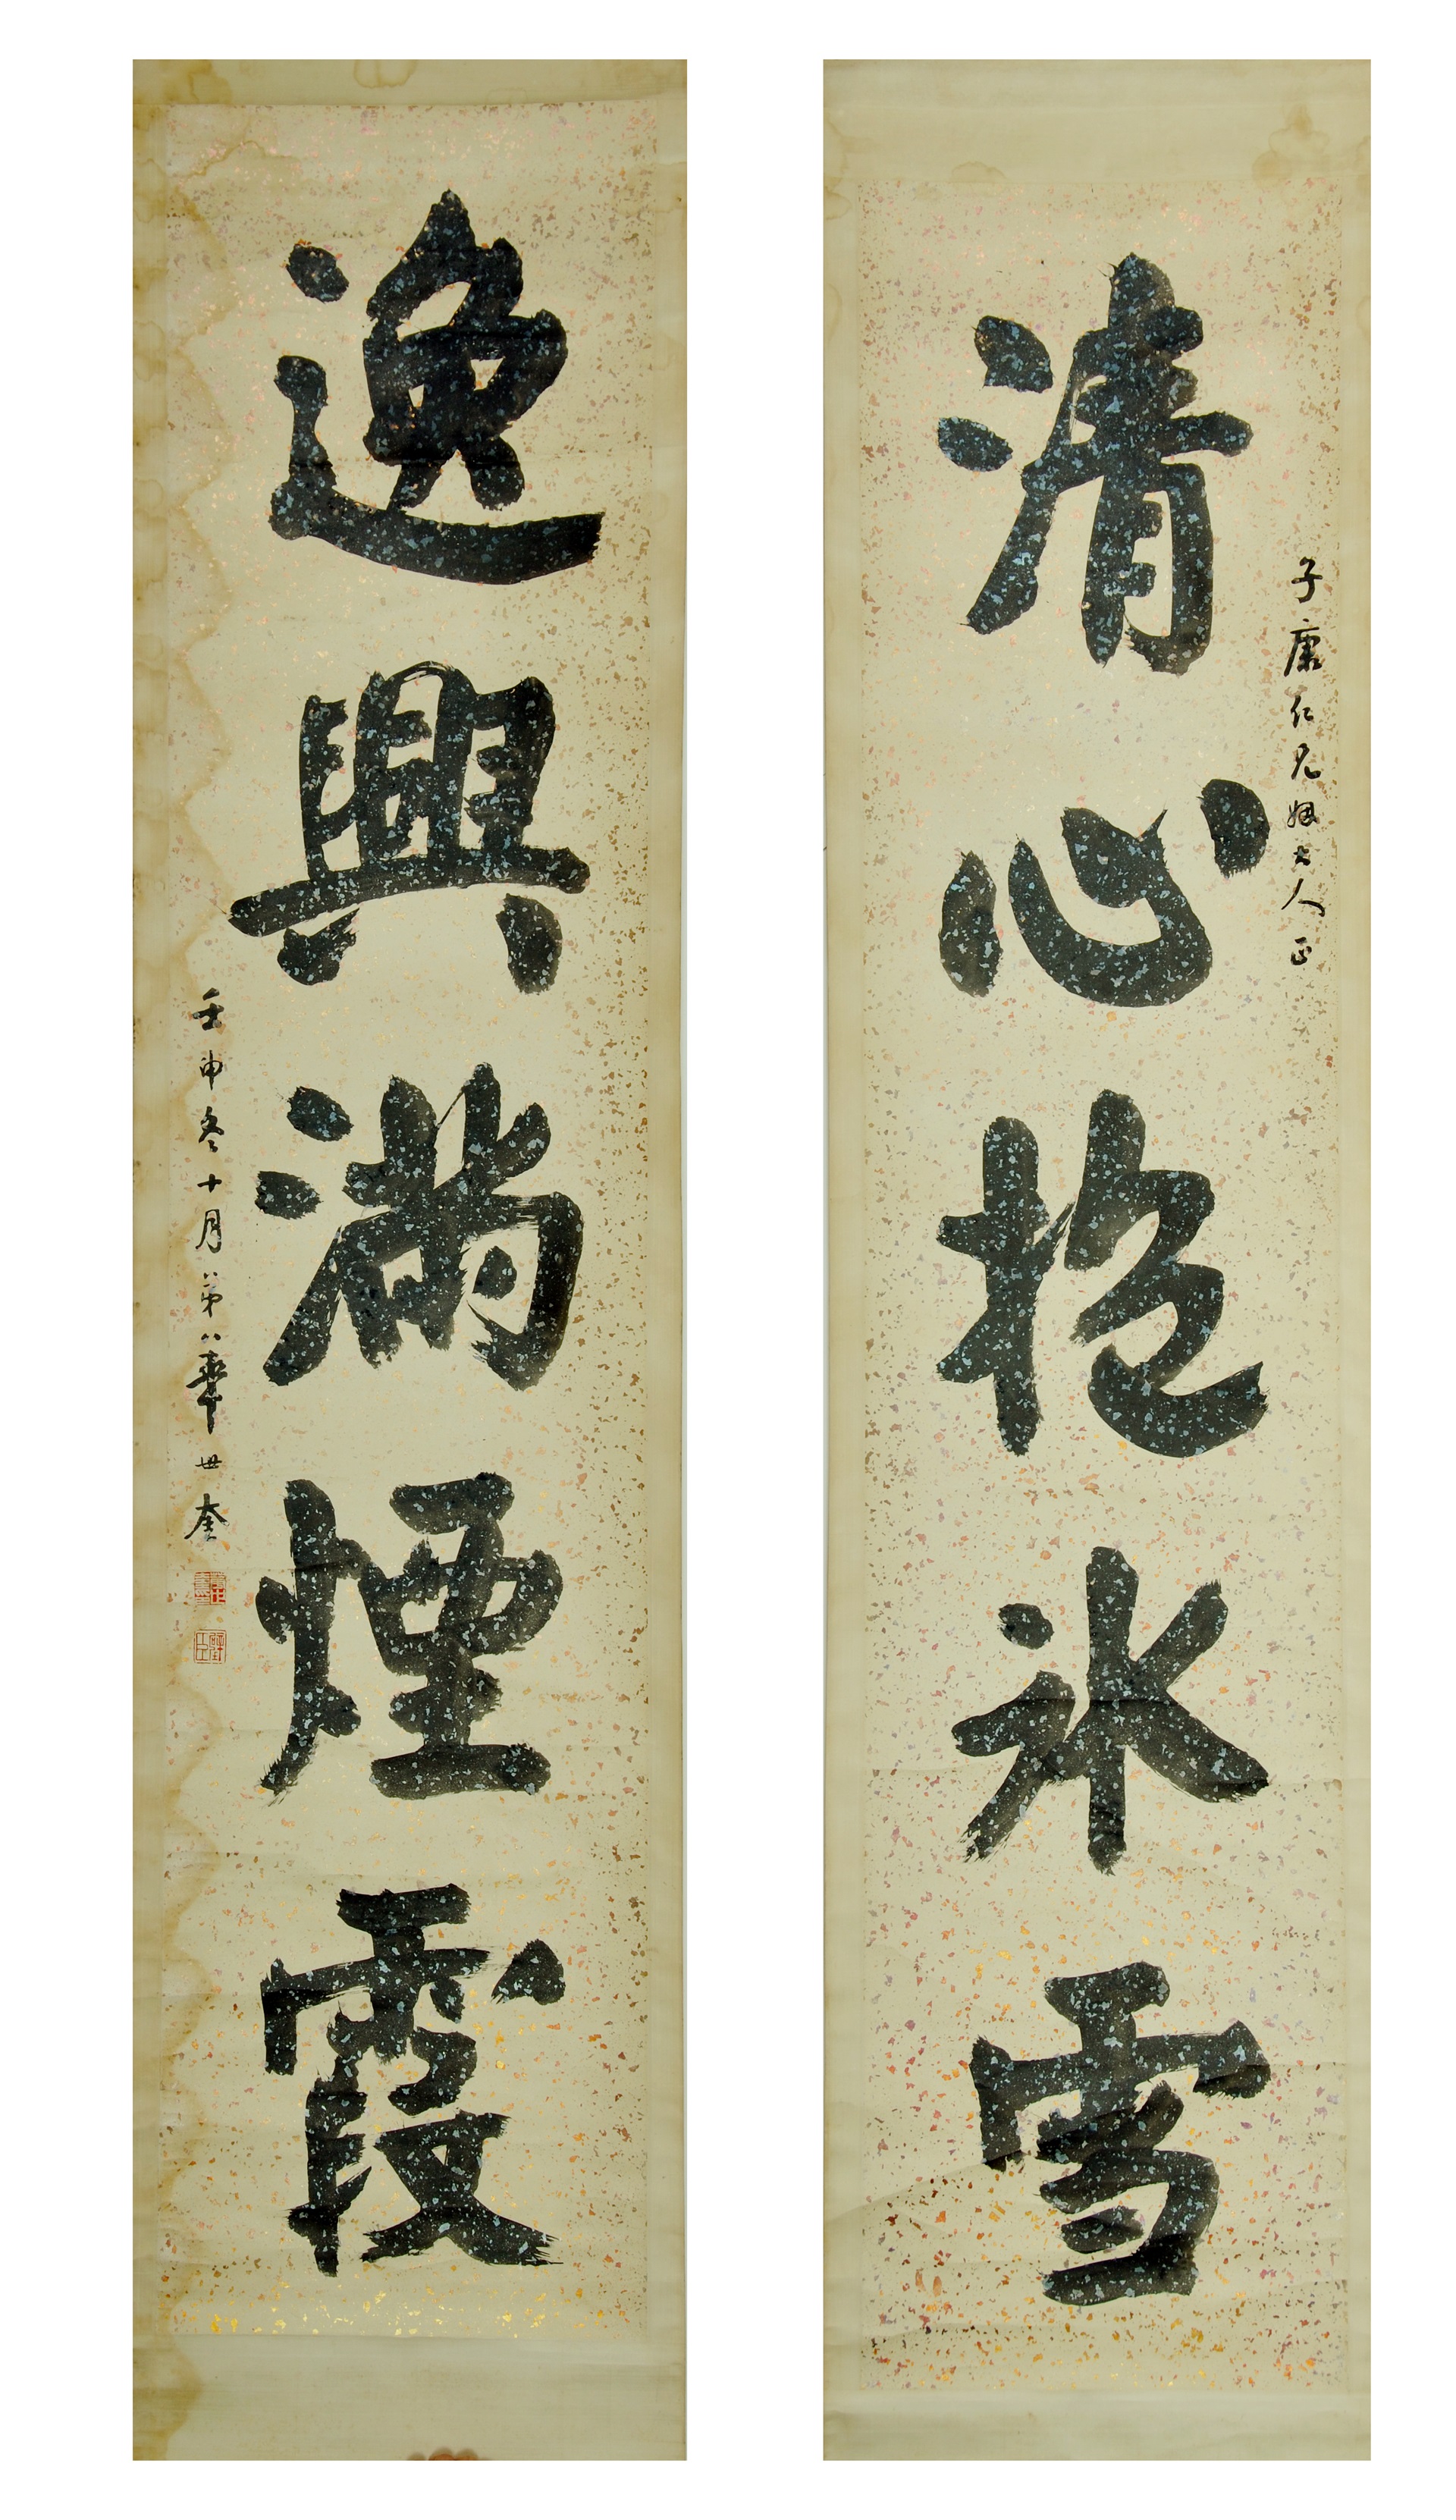 子康仁兄姻大人正
清心抱冰雪
逸興滿煙霞
壬申冬十月弟華世奎